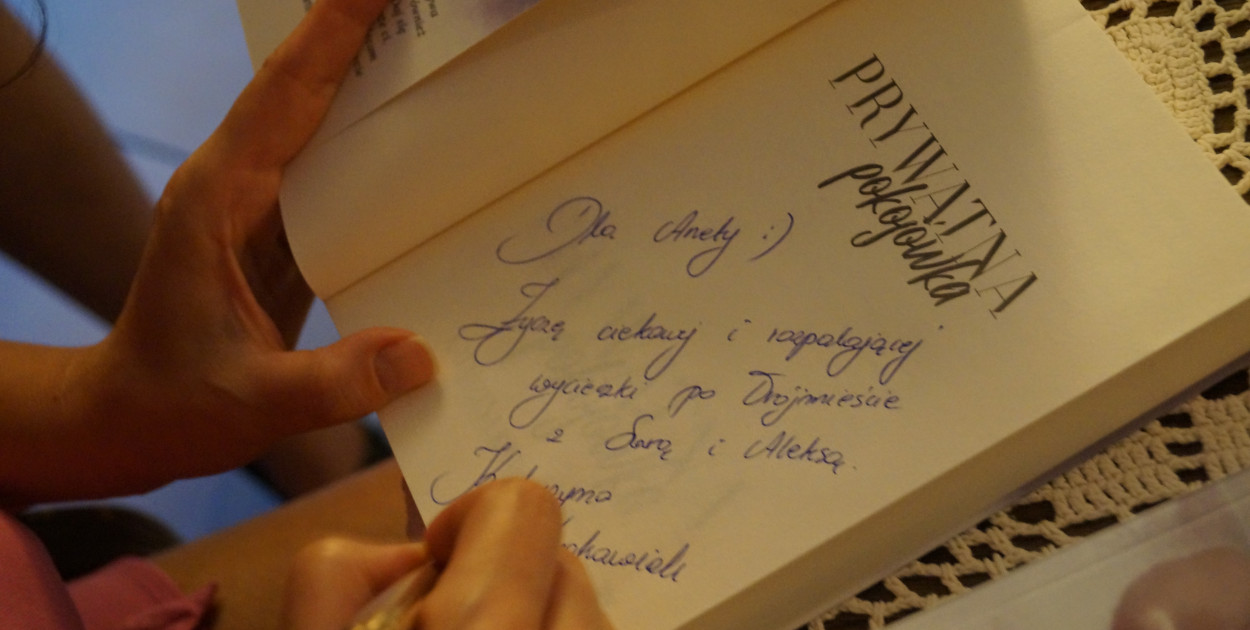 PRYWATNA
pokojówka
Dla Anety :)
Życzę ciekawej i rozpalającej
wycieczki po Trójmieście
z Sarą i Aleksą.